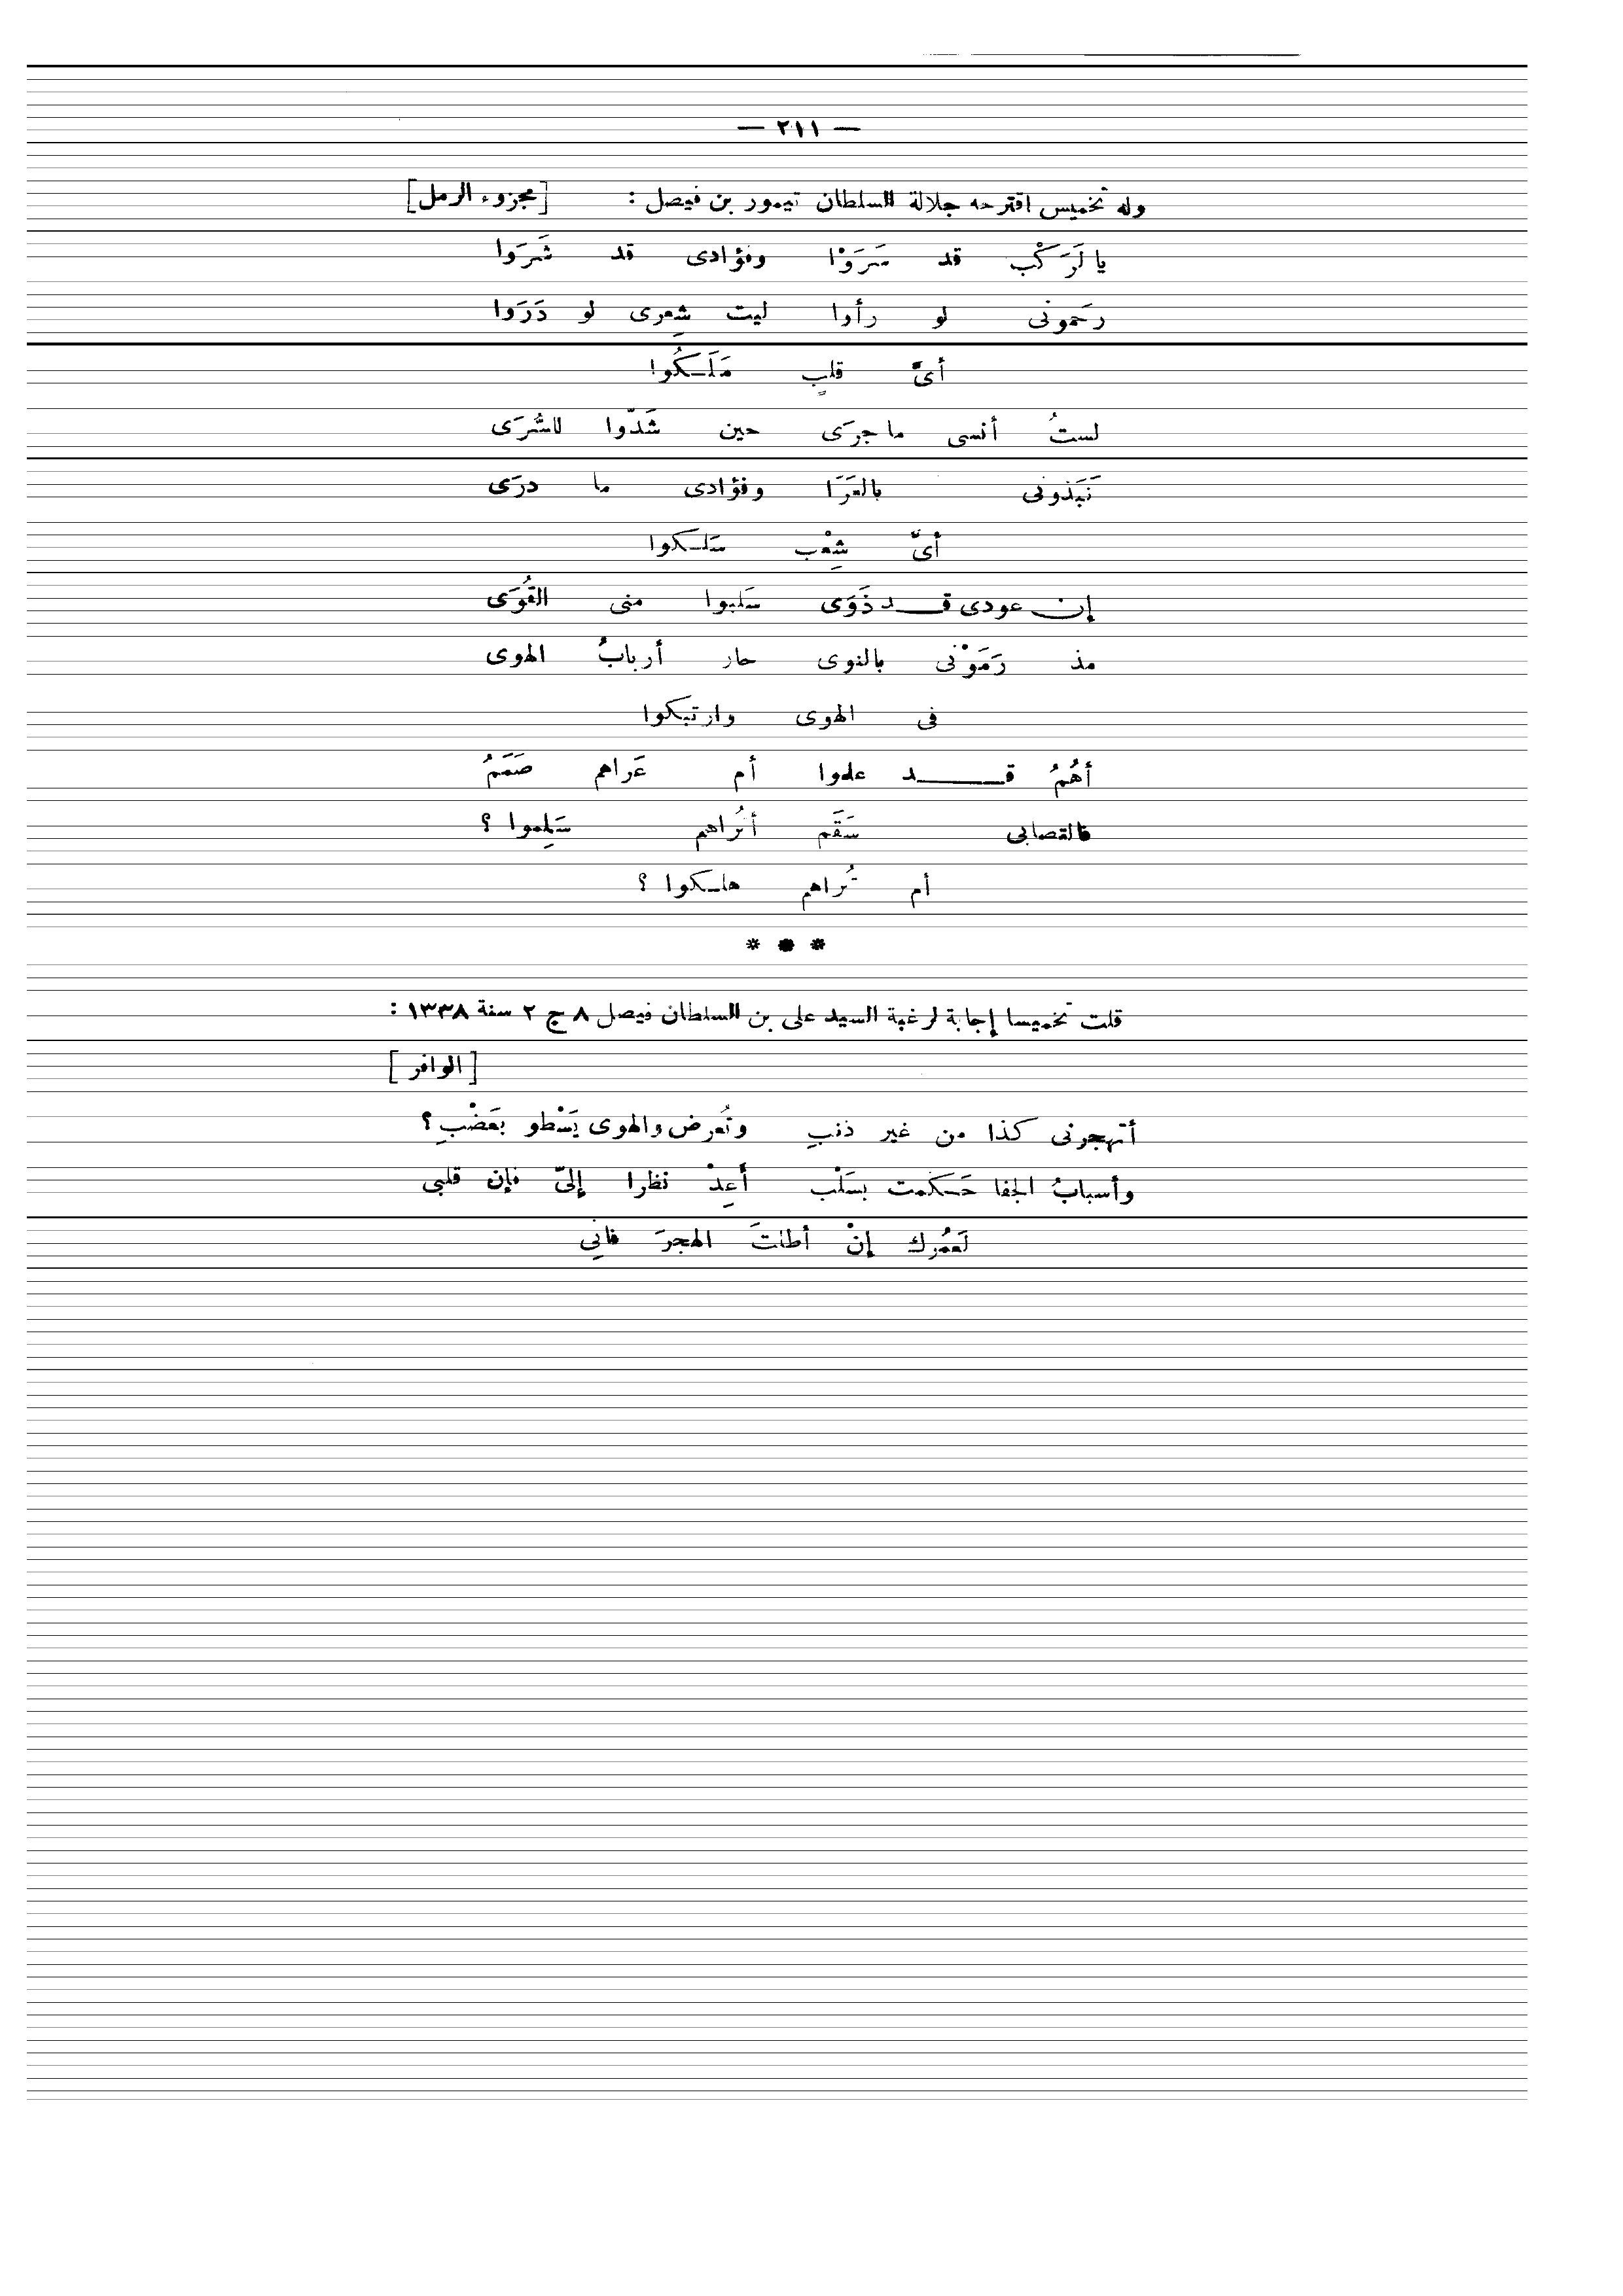 — ٢١١ —
وله تخميس اقترحه جلالة السلطان تيمور بن فيصل : [مجزوء الرمل]
يا لَرَكْب قد سَرَوْا وفؤادى قد شَرَوا
رحَمونى لو رأوا ليت شِعرى لو دَرَوا
أىَّ قلبٍ مَلَـكُوا
لستُ أنسى ما جرَى حين شَدّوا للسُّرَى
نَبَذونى بالعَرَا وفؤادى ما درَى
أىَّ شِعْب سَلـكوا
إن عودى قـد ذَوَى سَلبوا منى القُوَى
مذ رَمَوْنى بالنوى حار أربابُ الهوى
فى الهوى وارتبكوا
أهُمُ قـد علموا أم عَراهم صَمَمُ
فالتصابى سَقَم أتُراهم سَلِموا ؟
أم تُراهم هلـكوا ؟
* * *
قلت تخميسا إجابة لرغبة السيد على بن السلطان فيصل ٨ ج ٢ سنة ١٣٣٨ :
[ الوافر ]
أتهجرنى كذا من غير ذنبِ وتُعرض والهوى يَسْطو بعَضْبِ؟
وأسبابُ الجفا حَـكمت بسَلْب أعِدْ نظرا إلىّ فإن قلبى
لَعمُرك إنْ أطلتَ الهجرَ فانِى